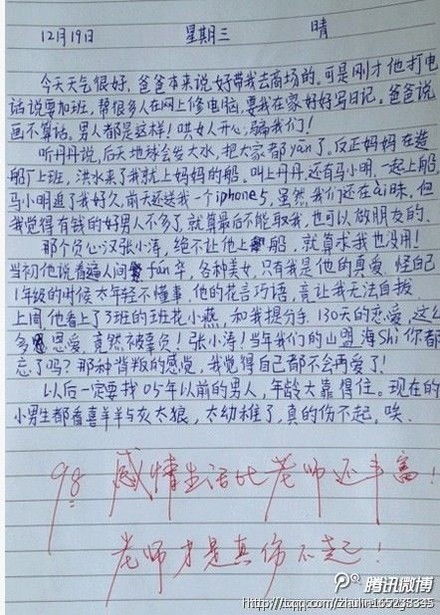 12月19日 星期三 晴
今天天气很好,爸爸本来说好带我去商场的,可是刚才他打电
话说要加班,帮很多人在网上修电脑,要我在家好好写日记。爸爸说
画不算话,男人都是这样!哄女人开心,骗我们!
听丹丹说,后天地球会发大水,把大家都yan了。反正妈妈在造
船厂上班,洪水来了我就上妈妈的船。叫上丹丹,还有马小明,一起上船,
马小明追了我好久,前天还送我一个iphone5,虽然我们还在ai昧,但
我觉得有钱的好男人不多了,就算最后不能取我,也可以做朋友的。
那个负心汉张小涛,绝不让他上船,就算求我也没用!
当初他说看遍人间fan华,各种美女,只有我是他的真爱,怪自己
1年级的时候太年轻不懂事,他的花言巧语,竟让我无法自拔
上周,他看上了3班的班花小燕,和我提分手,130天的恋爱,这么
多恩爱,竟然被辜负!张小涛!当年我们的山盟海Shi你都
忘了吗?那种背叛的感觉,我觉得自己都不会再爱了!
以后一定要找05年以前的男人,年龄大靠得住。现在的
小男生都看喜羊羊与灰太狼,太幼稚了,真的伤不起,唉、
98 感情生活比老师还丰富!
老师才是真伤不起!
腾讯微博